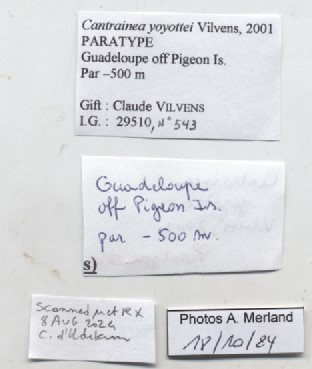 Cantrainea yoyottei Vilvens, 2001
PARATYPE
Guadeloupe off Pigeon Is.
Par –500 m
Gift : Claude VILVENS
I.G. : 29510, N° 543
Guadeloupe
off Pigeon Is.
par – 500 m.
s)
Scanned μct RX
8 AUG 2024
C. d'Udekem
Photos A. Merland
18/10/84